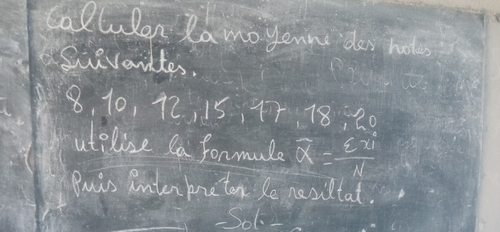 Calculer la moyenne des notes
Suivantes.
8, 10, 12, 15, 17, 18, 20
utilise la formule x̄ = Σxi/N
Puis interpréter le resiltat.
- Sol -